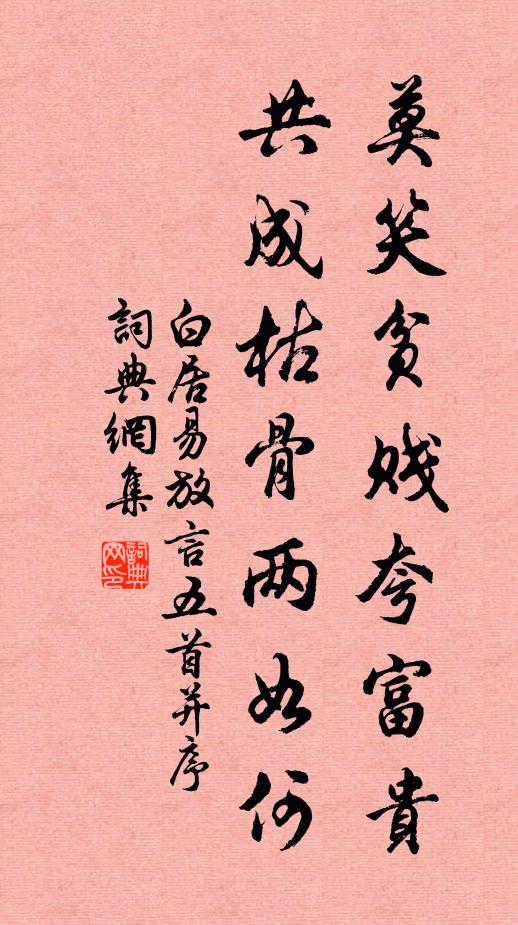 莫笑贫贱夸富貴
共成枯骨两如何
白居易放言五首并序
詞典網集
詞典網印